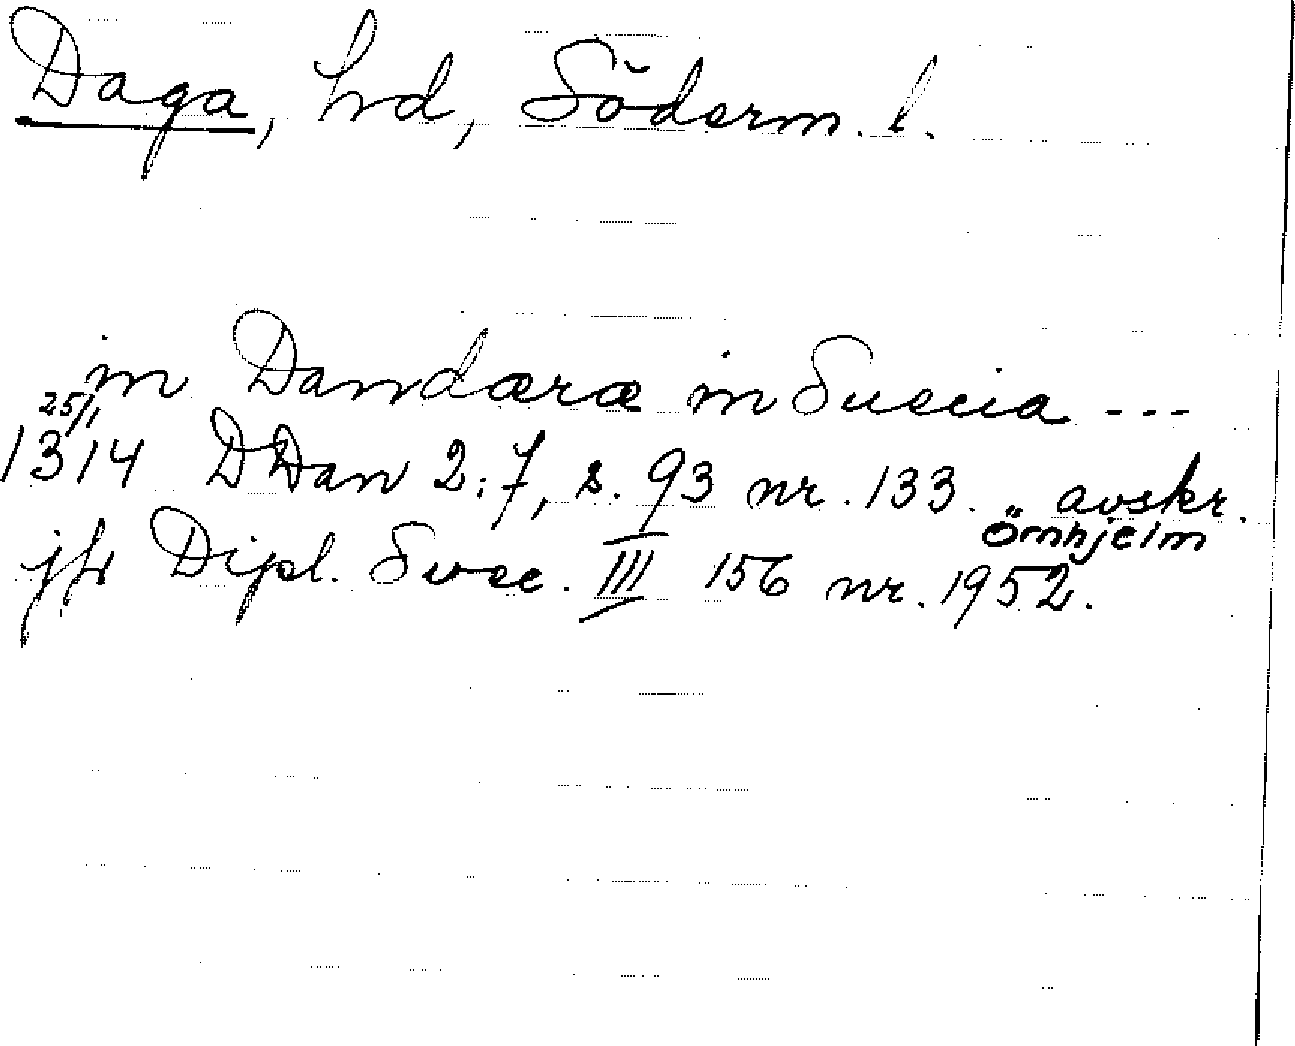 Daga, hd, Söderm. l.
in Dandæræ in Suecia ---
25/1
1314 DDan 2:7, s. 93 nr. 133. avskr.
Örnhjelm
jfr Dipl. Svec. III 156 nr. 1952.